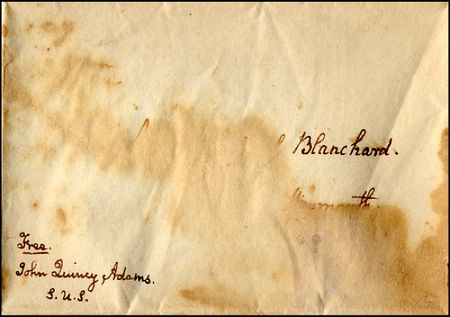 Blanchard.
th.
Free.
John Quincy Adams.
S. U. S.